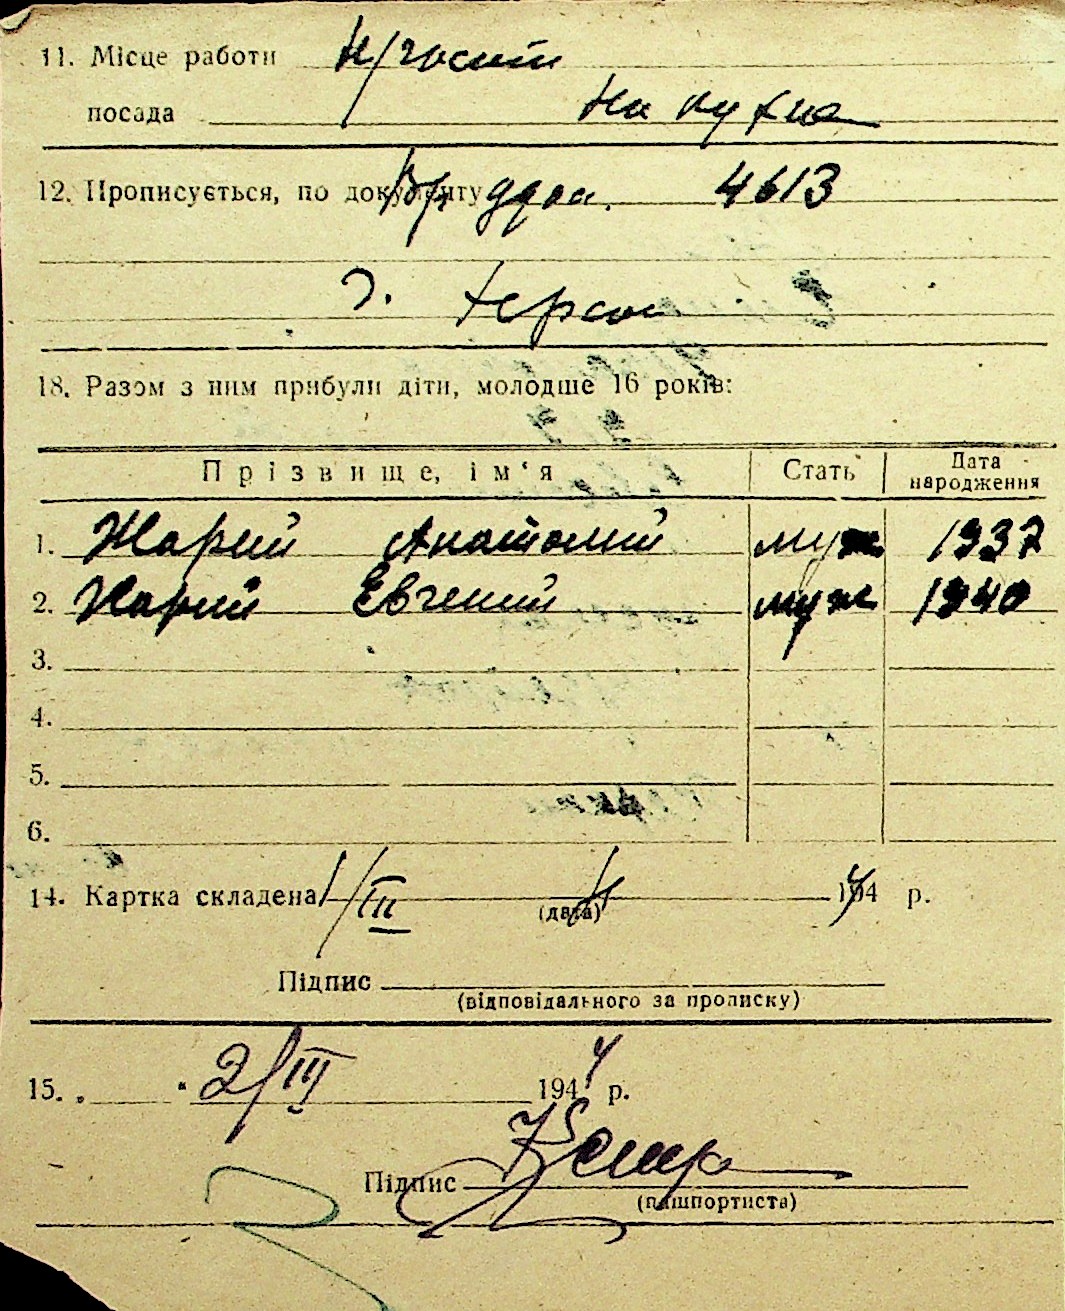 11. Місце работи н/госпит
посада на кухне
12. Прописується, по документу Вр. удост. 4613
г. Херсон
18. Разом з ним прибули діти, молодше 16 років:
Прізвище, ім‘я Стать Дата народження
1. Жарий Анатолий муж 1937
2. Жарий Евгений муж 1940
3.
4.
5.
6.
14. Картка складена 1/III 194 р.
(дата)
Підпис
(відповідального за прописку)
15. „ “ 2/III 1944 р.
Підпис
(пашпортиста)